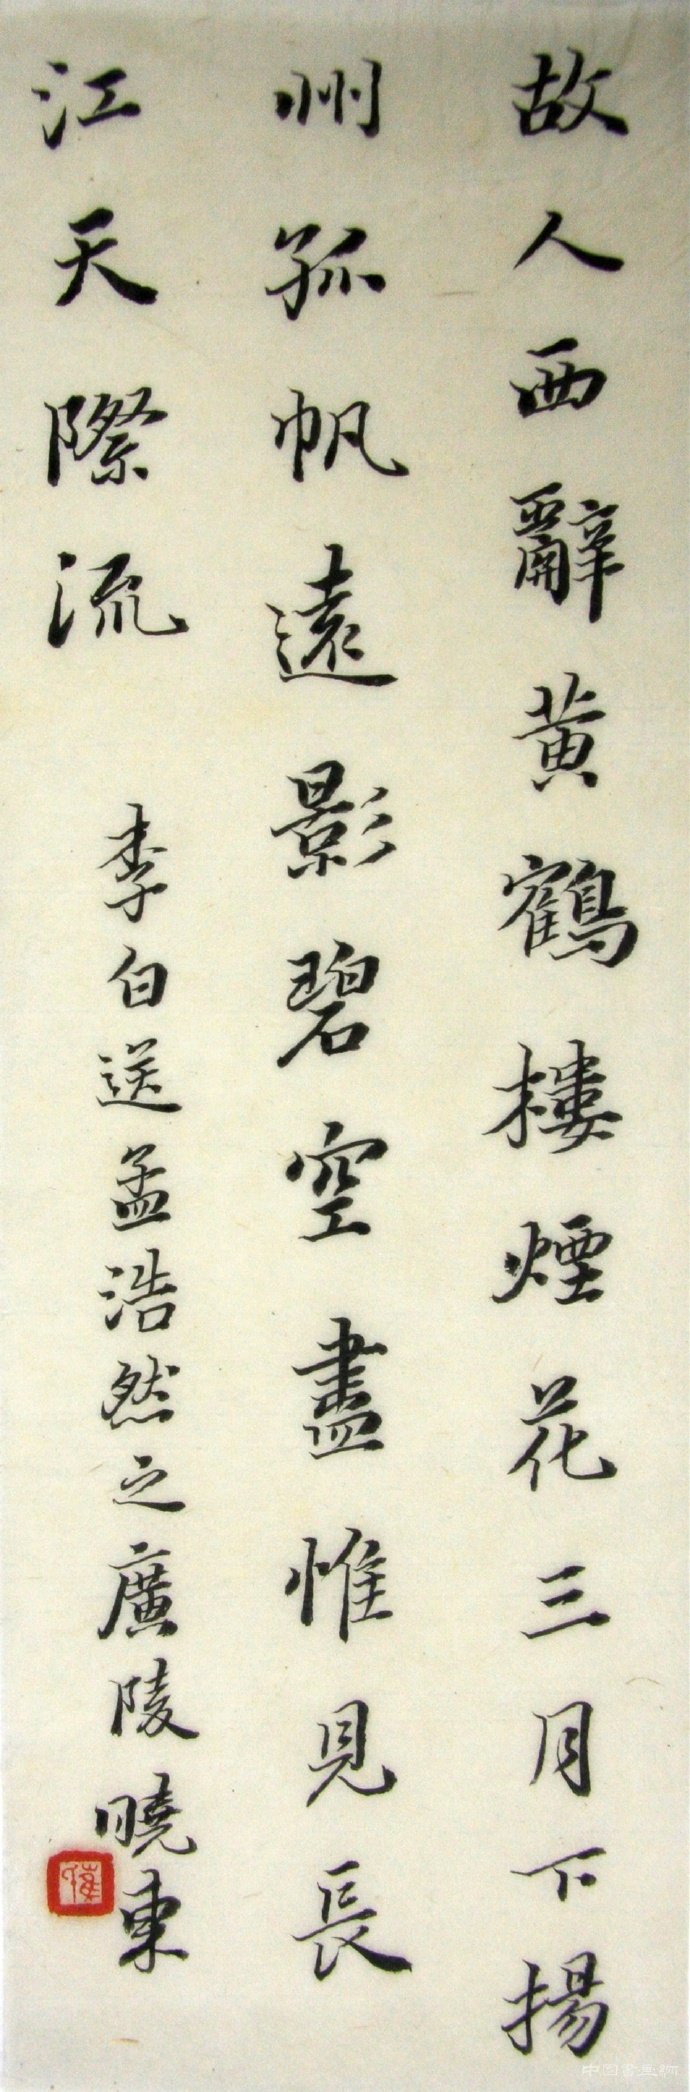 故人西辭黄鶴樓煙花三月下揚
州孤帆遠影碧空盡惟見長
江天際流
李白送孟浩然之廣陵曉東
中国書画網